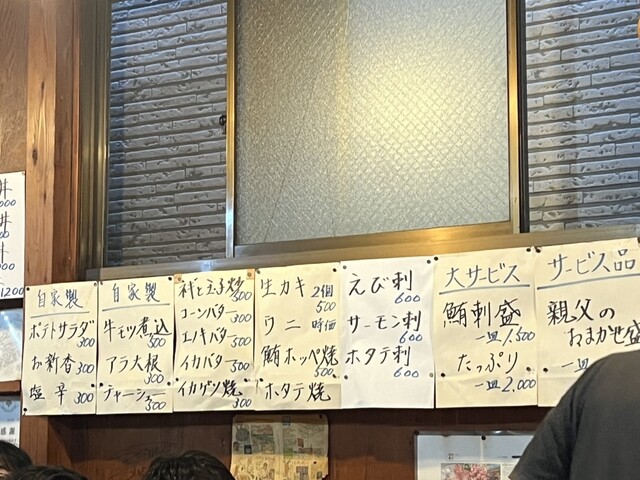 丼
000
丼
1200
自家製
ポテトサラダ 300
お新香 300
塩辛 300
自家製
牛モツ煮込 500
アラ大根 300
チャーシュー 500
500
コーンバター 300
エノキバター 300
イカバター 500
イカゲソ焼 300
生カキ 2個 500
ウニ 時価
鮪ホッペ焼 500
ホタテ焼
えび刺 600
サーモン刺 600
ホタテ刺 600
大サービス
鮪刺盛
一皿 1,500
たっぷり
一皿 2,000
サービス品
親父の
おまかせ盛
一皿
感謝